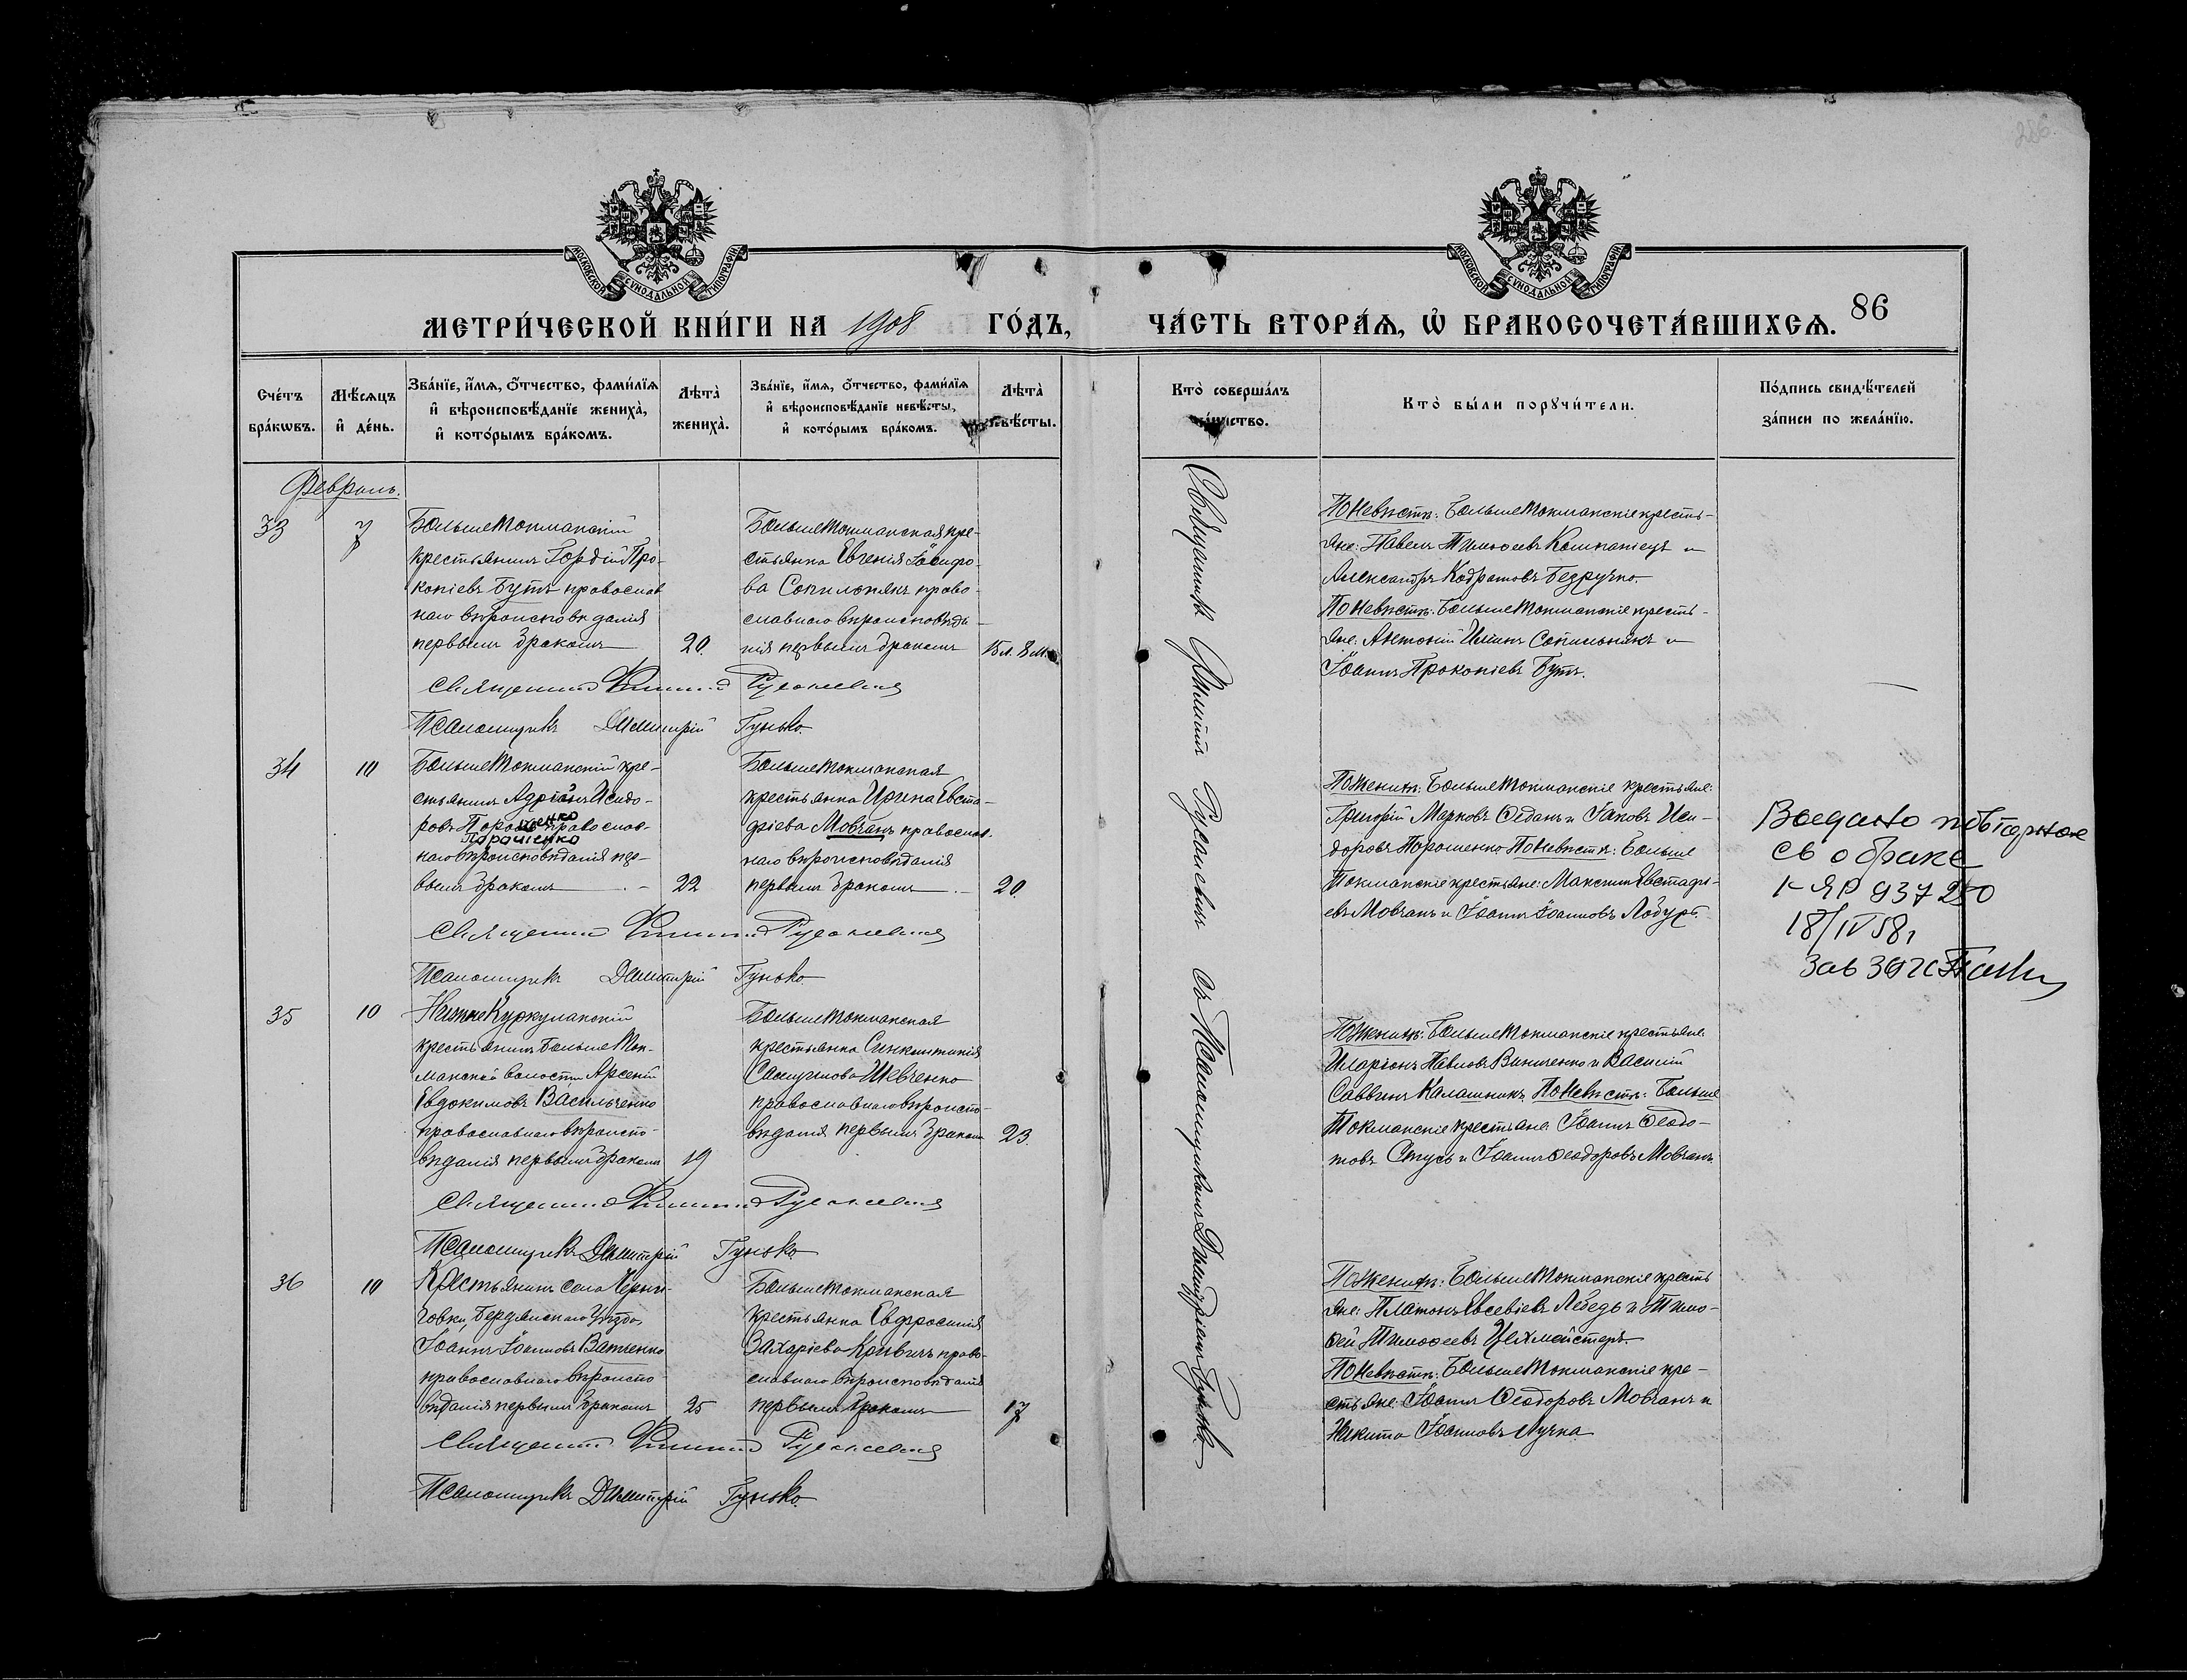 286
МОСКОВСКОЙ СѴНОДАЛЬНОЙ ТИПОГРАФІИ
МОСКОВСКОЙ СѴНОДАЛЬНОЙ ТИПОГРАФІИ
МЕТРИ́ЧЕСКОЙ КНИ́ГИ НА 1908 ГО́ДЪ,
ЧА́СТЬ ВТОРА́Ѧ, Ѡ҆ БРАКОСОЧЕТА́ВШИХСѦ.
86
Сче́тъ бра́кѡвъ.
Мѣ́сѧцъ и҆ де́нь.
Зва́нїе, и҆́мѧ, о҆́тчество, фами́лїѧ и҆ вѣроисповѣ́данїе жениха̀, и҆ кото́рымъ бра́комъ.
Лѣта̀ жениха̀.
Зва́нїе, и҆́мѧ, о҆́тчество, фами́лїѧ и҆ вѣроисповѣ́данїе невѣ́сты, и҆ кото́рымъ бра́комъ.
Лѣта̀ невѣ́сты.
Кто̀ соверша́лъ та́инство.
Кто̀ бы́ли порꙋчи́тели.
По́дпись свидѣ́телей за́писи по жела́нїю.
Февраль.
33
7
БольшеТокмакскій
крестьянинъ Гордій Про-
копіевъ Бутъ православ
наго вѣроисповѣданія
первымъ бракомъ
20.
БольшеТокмакская кре-
стьянка Евгенія Іосифо-
ва Сопильнякъ право-
славнаго вѣроисповѣда-
нія первымъ бракомъ
15 л. 8 м.
Священникъ Филиппъ
Псаломщикъ Димитрій Гунько.
34
10
БольшеТокмакскій кре-
стьянинъ Адріанъ Исидо-
ровъ Порошенко православ-
Порошенко
наго вѣроисповѣданія пер-
вымъ бракомъ
22
БольшеТокмакская
крестьянка Ирина Евста-
фіева Мовчанъ православ-
наго вѣроисповѣданія
первымъ бракомъ
20.
Священникъ Филиппъ
Псаломщикъ Димитрій Гунько.
35
10
НижнеКуркулакскій
крестьянинъ БольшеТок-
макской волости Арсеній
Евдокимовъ Васильченко
православнаго вѣроиспо-
вѣданія первымъ бракомъ
19
БольшеТокмакская
крестьянка Синклитикія
Самуилова Шевченко
православнаго вѣроиспо-
вѣданія первымъ бракомъ
23.
Священникъ Филиппъ
Псаломщикъ Димитрій Гунько.
36
10
Крестьянинъ села Черни-
говки, Бердянскаго уѣзда,
Іоаннъ Іоанновъ Ватченко
православнаго вѣроиспо-
вѣданія первымъ бракомъ
25
БольшеТокмакская
крестьянка Евфросинія
Захаріева Кривичъ право-
славнаго вѣроисповѣданія
первымъ бракомъ
17
Священникъ Филиппъ
Псаломщикъ Димитрій Гунько.
Священникъ Филиппъ съ Псаломщикомъ Димитріемъ Гунько.
По невѣстѣ: БольшеТокмакскіе кресть-
яне: Павелъ Тимоѳеевъ Компаніецъ и
Александръ Кодратовъ Безручко
По невѣстѣ: БольшеТокмакскіе кресть-
яне: Антоній Ильинъ Сопильнякъ и
Іоаннъ Прокопіевъ Бутъ.
По женихѣ: БольшеТокмакскіе крестьяне:
Григорій Марковъ Ѳеданъ и Іаковъ Иси-
доровъ Порошенко. По невѣстѣ: Больше
Токмакскіе крестьяне: Максимъ Евстафі-
евъ Мовчанъ и Іоаннъ Іоанновъ Лабуръ.
Выдано повторное
св о браке
1-ЯР 937250
18/IV 58г
Зав ЗАГС
По женихѣ: БольшеТокмакскіе крестьяне:
Иларіонъ Павловъ Винниченко и Василій
Саввинъ Калашникъ. По невѣстѣ: Больше
Токмакскіе крестьяне: Іоаннъ Ѳеодо-
товъ Стусь и Іоаннъ Ѳеодоровъ Мовчанъ.
По женихѣ: БольшеТокмакскіе кресть
яне: Платонъ Евсевіевъ Лебедь и Тимо-
ѳей Тимоѳеевъ Цехмейстеръ.
По невѣстѣ: БольшеТокмакскіе кре-
стьяне: Іоаннъ Ѳеодоровъ Мовчанъ и
Никита Іоанновъ Лучка